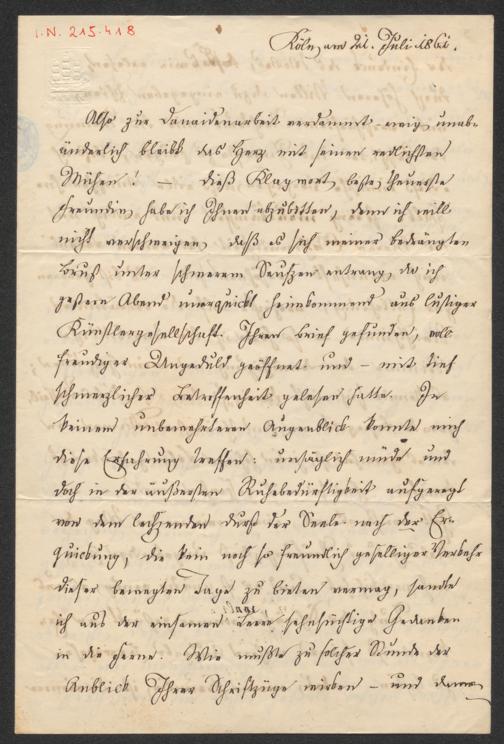 I.N. 215.418
Köln, am 21. Juli 1861.
Also zur Danaidenarbeit verdammt ewig, unab-
änderlich bleibt das Herz mit seinen redlichsten
Mühen! — dieß Klagwort, beste, theuerste
Freundin, habe ich Ihnen abzubitten, denn ich will
nicht verschweigen, daß es sich meiner bedrängten
Brust unter schwerem Seufzen entrang, da ich
gestern Abend unerquickt heimkommend aus lustiger
Künstlergesellschaft. Ihren Brief gefunden, voll
freudiger Ungeduld geöffnet und – mit tief
schmerzlicher Betroffenheit gelesen hatte. In
keinem unbewehrteren Augenblick konnte mich
diese Erfahrung treffen: unsäglich müde und
doch in der äußersten Ruhebedürftigkeit aufgeregt
von dem lechzenden Durst der Seele nach der Er-
quickung, die kein noch so freundlich geselliger Verkehr
dieser bewegten Tage zu bieten vermag, sandte
ich aus der einsamen Leere sehnsüchtige Gedanken
in die Ferne. Wie mußte zu solcher Stunde der
Anblick Ihrer Schriftzüge wirken – und dann